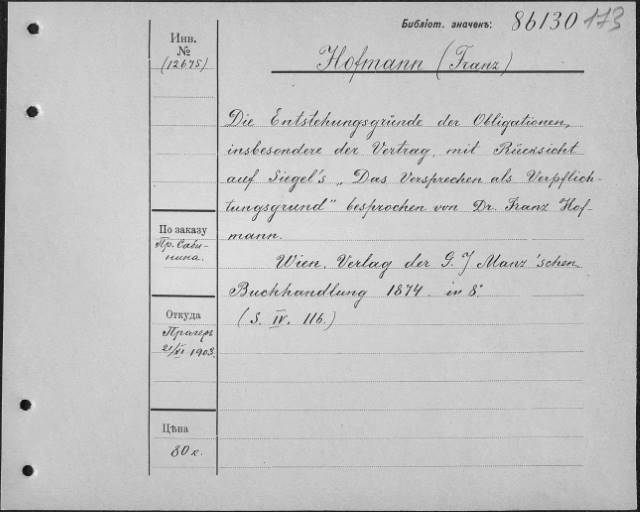 Библіот. значекъ: 8б130 173
Инв.
№
(12675)
Hofmann (Franz)
Die Entstehungsgründe der Obligationen,
insbesondere der Vertrag, mit Rücksicht
auf Siegel's „Das Versprechen als Verpflich-
tungsgrund" besprochen von Dr. Franz Hof-
mann.
Wien. Verlag der G. J Manz'schen
Buchhandlung 1874. in 8°.
(S. IV. 116.)
По заказу
Пр. Саби-
нина.
Откуда
Прагеръ
21/VI 1903.
Цѣна
80 к.